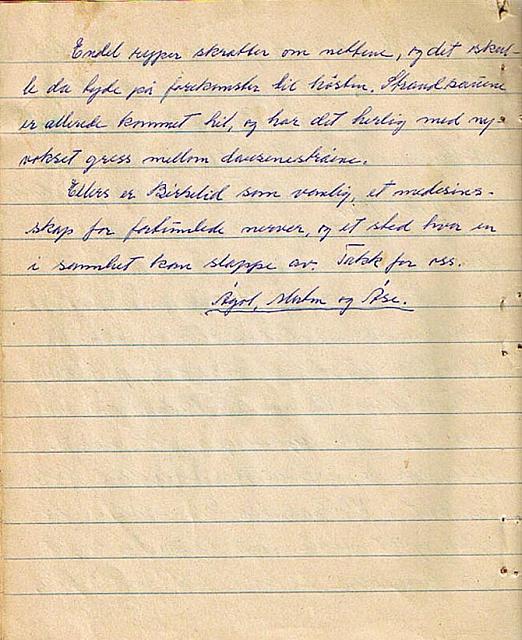 Endel ryper skratter om nettene, og det skul-
le da tyde på forekomster til høsten. Strandsauene
er allerede kommet hit, og har det herlig med ny-
vokset gress mellom
Ellers er Birkelid som vanlig, et medesins-
skap for fortumlede nerver, og et sted hvor en
i sannhet kan slappe av. Takk for oss.
og Åse.